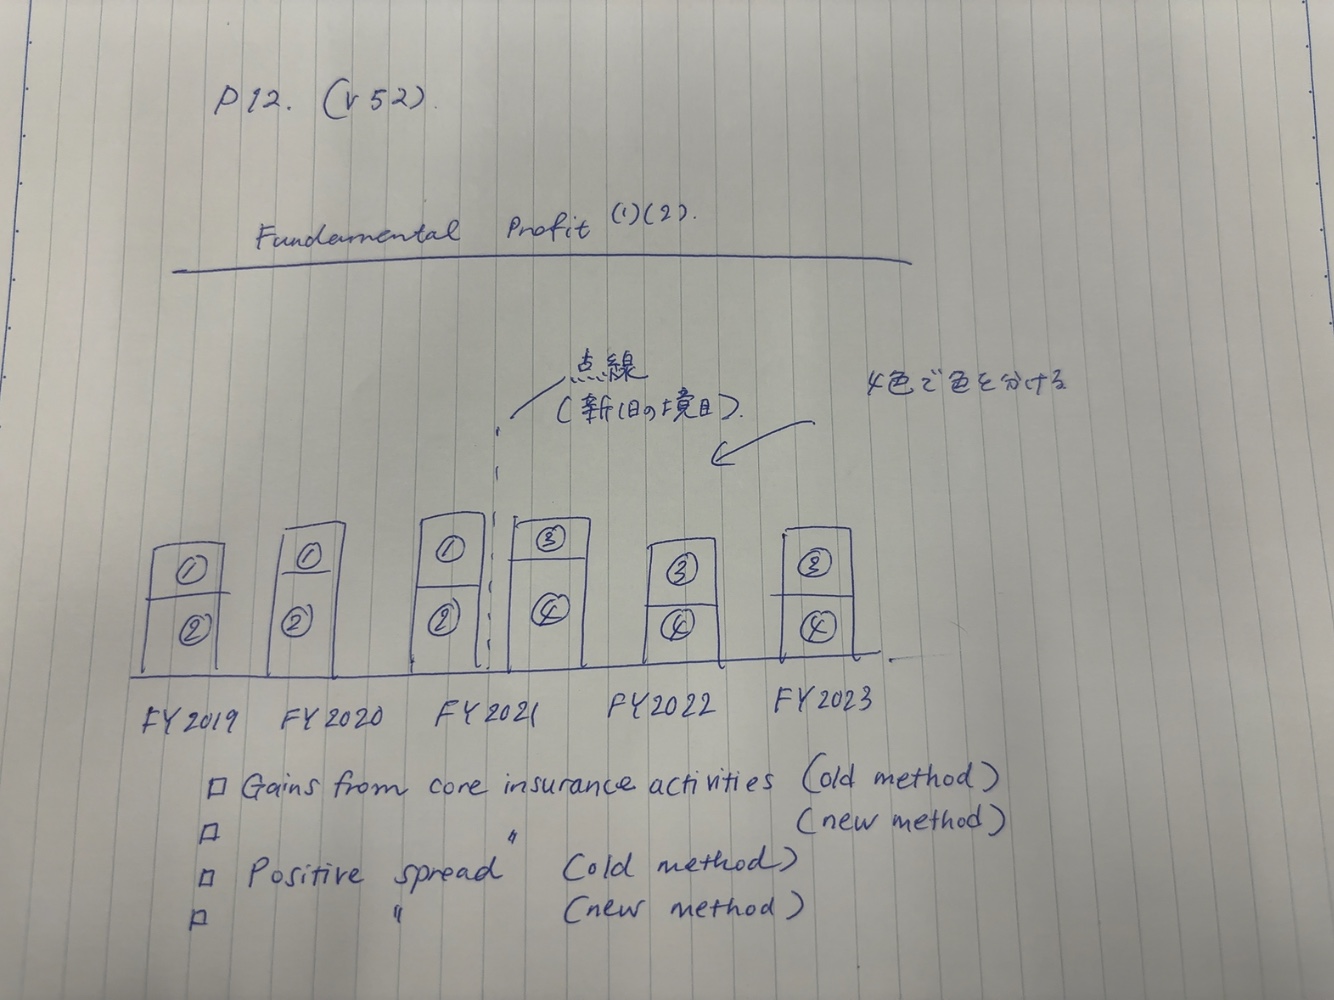 P12. (r52).
Fundamental Profit (1)(2).
点線
(新旧の境目).
4色で色を分ける
① ① ① ③ ③ ③
② ② ② ④ ④ ④
FY2019 FY2020 FY2021 FY2022 FY2023
□ Gains from core insurance activities (old method)
□ 〃 (new method)
□ Positive spread (old method)
□ 〃 (new method)